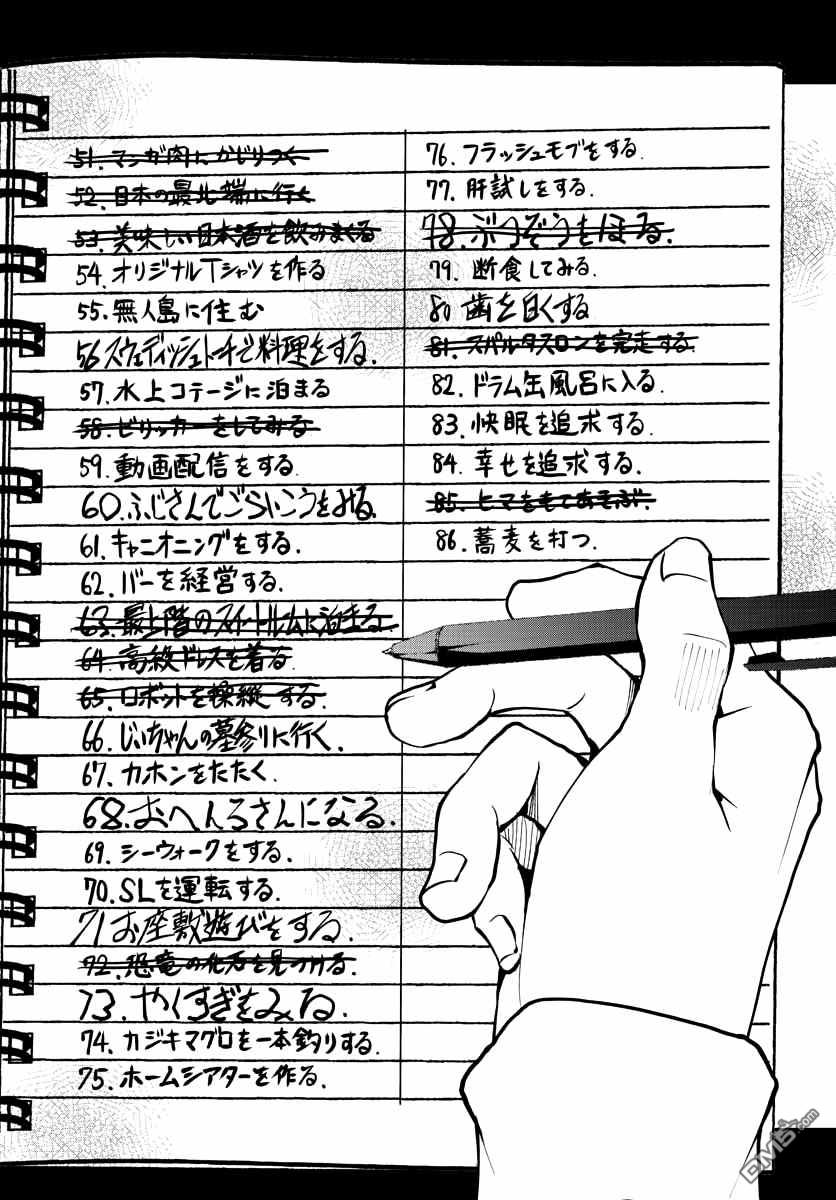 51. マンガ肉にかじりつく
52. 日本の最北端に行く
53. 美味しい日本酒を飲みまくる
54. オリジナルTシャツを作る
55. 無人島に住む
56 スウェディッシュトーチで料理をする.
57. 水上コテージに泊まる
58. ビリッカーをしてみる
59. 動画配信をする.
60. ふじさんでごらいこうをみる.
61. キャニオニングをする.
62. バーを経営する.
63. 最上階のスイートルームに泊まる.
64. 高級ドレスを着る
65. ロボットを操縦する.
66. じいちゃんの墓参りに行く.
67. カホンをたたく.
68. おへんろさんになる.
69. シーウォークをする.
70. SLを運転する.
71 お座敷遊びをする.
72. 恐竜の化石を見つける.
73. やくすぎをみる.
74. カジキマグロを一本釣りする.
75. ホームシアターを作る.
76. フラッシュモブをする.
77. 肝試しをする.
78. ぶつぞうをほる.
79. 断食してみる.
80 歯を白くする
81. スパルタスロンを完走する.
82. ドラム缶風呂に入る.
83. 快眠を追求する.
84. 幸せを追求する.
85. ヒマをもてあそぶ.
86. 蕎麦を打つ.